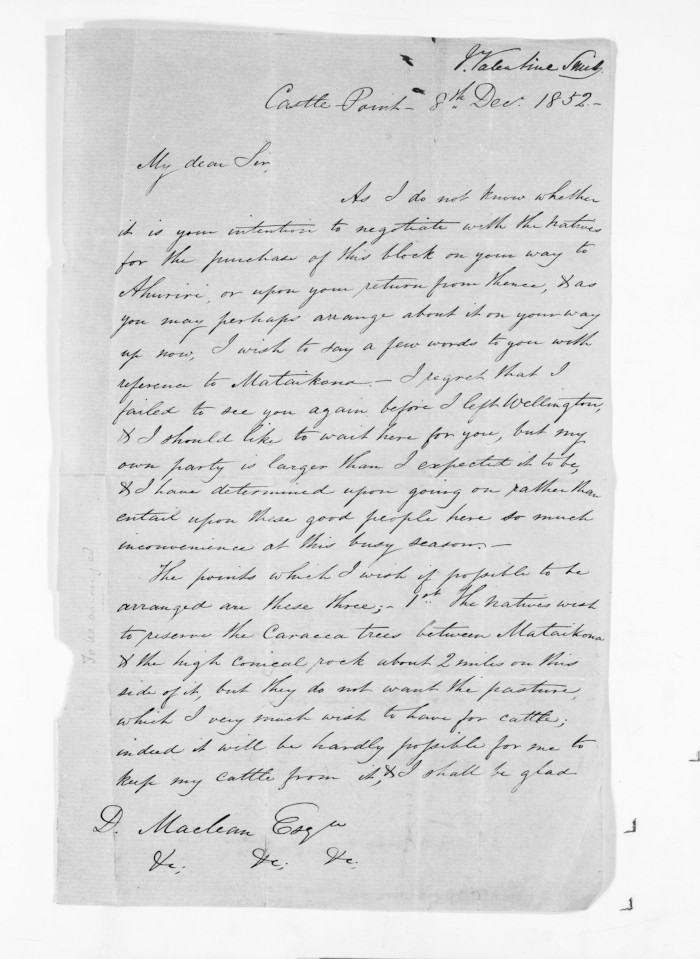 J. Valentine Smith.
Castle Point - 8th Decr. 1852 -
My dear Sir,
As I do not know whether
it is your intention to negotiate with the Natives
for the purchase of this block on your way to
Ahuriri, or upon your return from thence, & as
you may perhaps arrange about it on your way
up now, I wish to say a few words to you with
reference to Mataikona. - I regret that I
failed to see you again before I left Wellington,
& I should like to wait here for you, but my
own party is larger than I expected it to be,
& I have determined upon going on rather than
entail upon these good people here so much
inconvenience at this busy season. -
The points which I wish if possible to be
arranged are these three; - 1st. The Natives wish
to reserve the Caracca trees between Mataikona
& the high conical rock about 2 miles on this
side of it, but they do not want the pasture,
which I very much wish to have for cattle;
indeed it will be hardly possible for me to
keep my cattle from it, & I shall be glad
D. Maclean Esqre
&c; &c; &c;
To be arranged